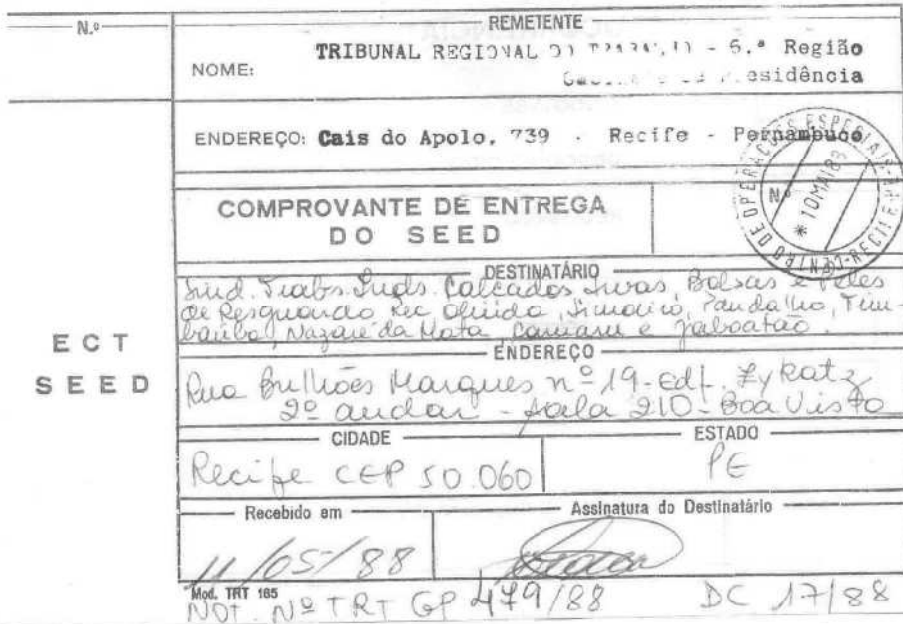 N.º
REMETENTE
NOME: TRIBUNAL REGIONAL DO TRABALHO - 6.ª Região
Gabinete da Presidência
ENDEREÇO: Cais do Apolo, 739 - Recife - Pernambuco
CENTRO DE OPERAÇÕES ESPECIAIS
RECIFE
Nº
* 10 MAI 88
COMPROVANTE DE ENTREGA
DO SEED
ECT
SEED
DESTINATÁRIO
Sind. Trabs. Inds. Calcados Luvas, Bolsas e Peles
de Resguardo Rec Olinda, Limoeiro, Paudalho, Tim-
baúba, Nazaré da Mata, e Jaboatão.
ENDEREÇO
Rua Bulhões Marques nº 19 - Edf. Zykatz
2º andar - sala 210 - Boa Vista
CIDADE
Recife CEP 50.060
ESTADO
PE
Recebido em
11/05/88
Assinatura do Destinatário
Mod. TRT 165
NOT. Nº TRT GP 479/88 DC 17/88